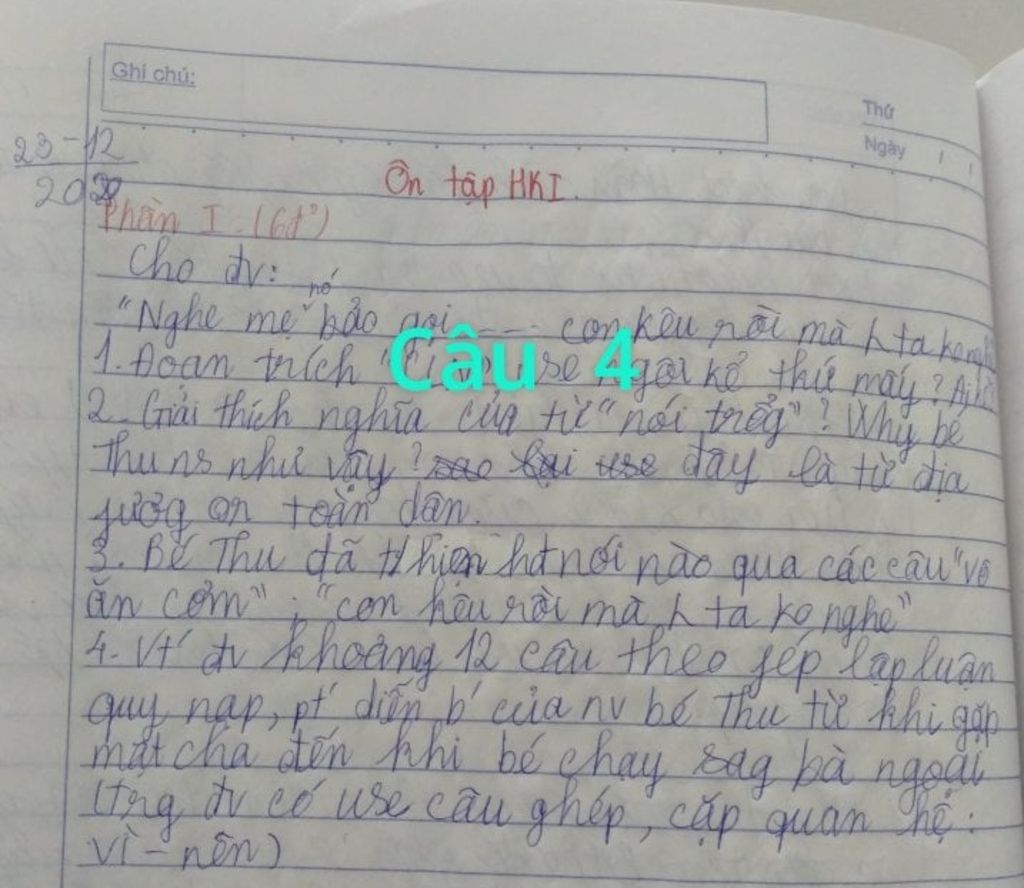 Ghi chú:
Thứ
Ngày
23-12
Ôn tập HKI.
Phần I: (6đ)
Cho đv:
nó
"Nghe mẹ bảo gọi --- con kêu rồi mà h ta ko
1. Đoạn trích use ngôi kể thứ mấy? Ai
Câu 4
2. Giải thích nghĩa của từ "nói trổg"? Why bé
Thu ns như vậy? đây là từ địa
fươg or toàn dân.
3. Bé Thu đã t/hiện hđ nói nào qua các câu "vô
ăn cơm"; "con kêu rồi mà h ta ko nghe"
4. Vt' đv khoảng 12 câu theo fép lập luận
quy nạp, pt' diễn b' của nv bé Thu từ khi gặp
mặt cha đến khi bé chạy sag bà ngoại
(trg đv có use câu ghép, cặp quan hệ:
vì - nên)